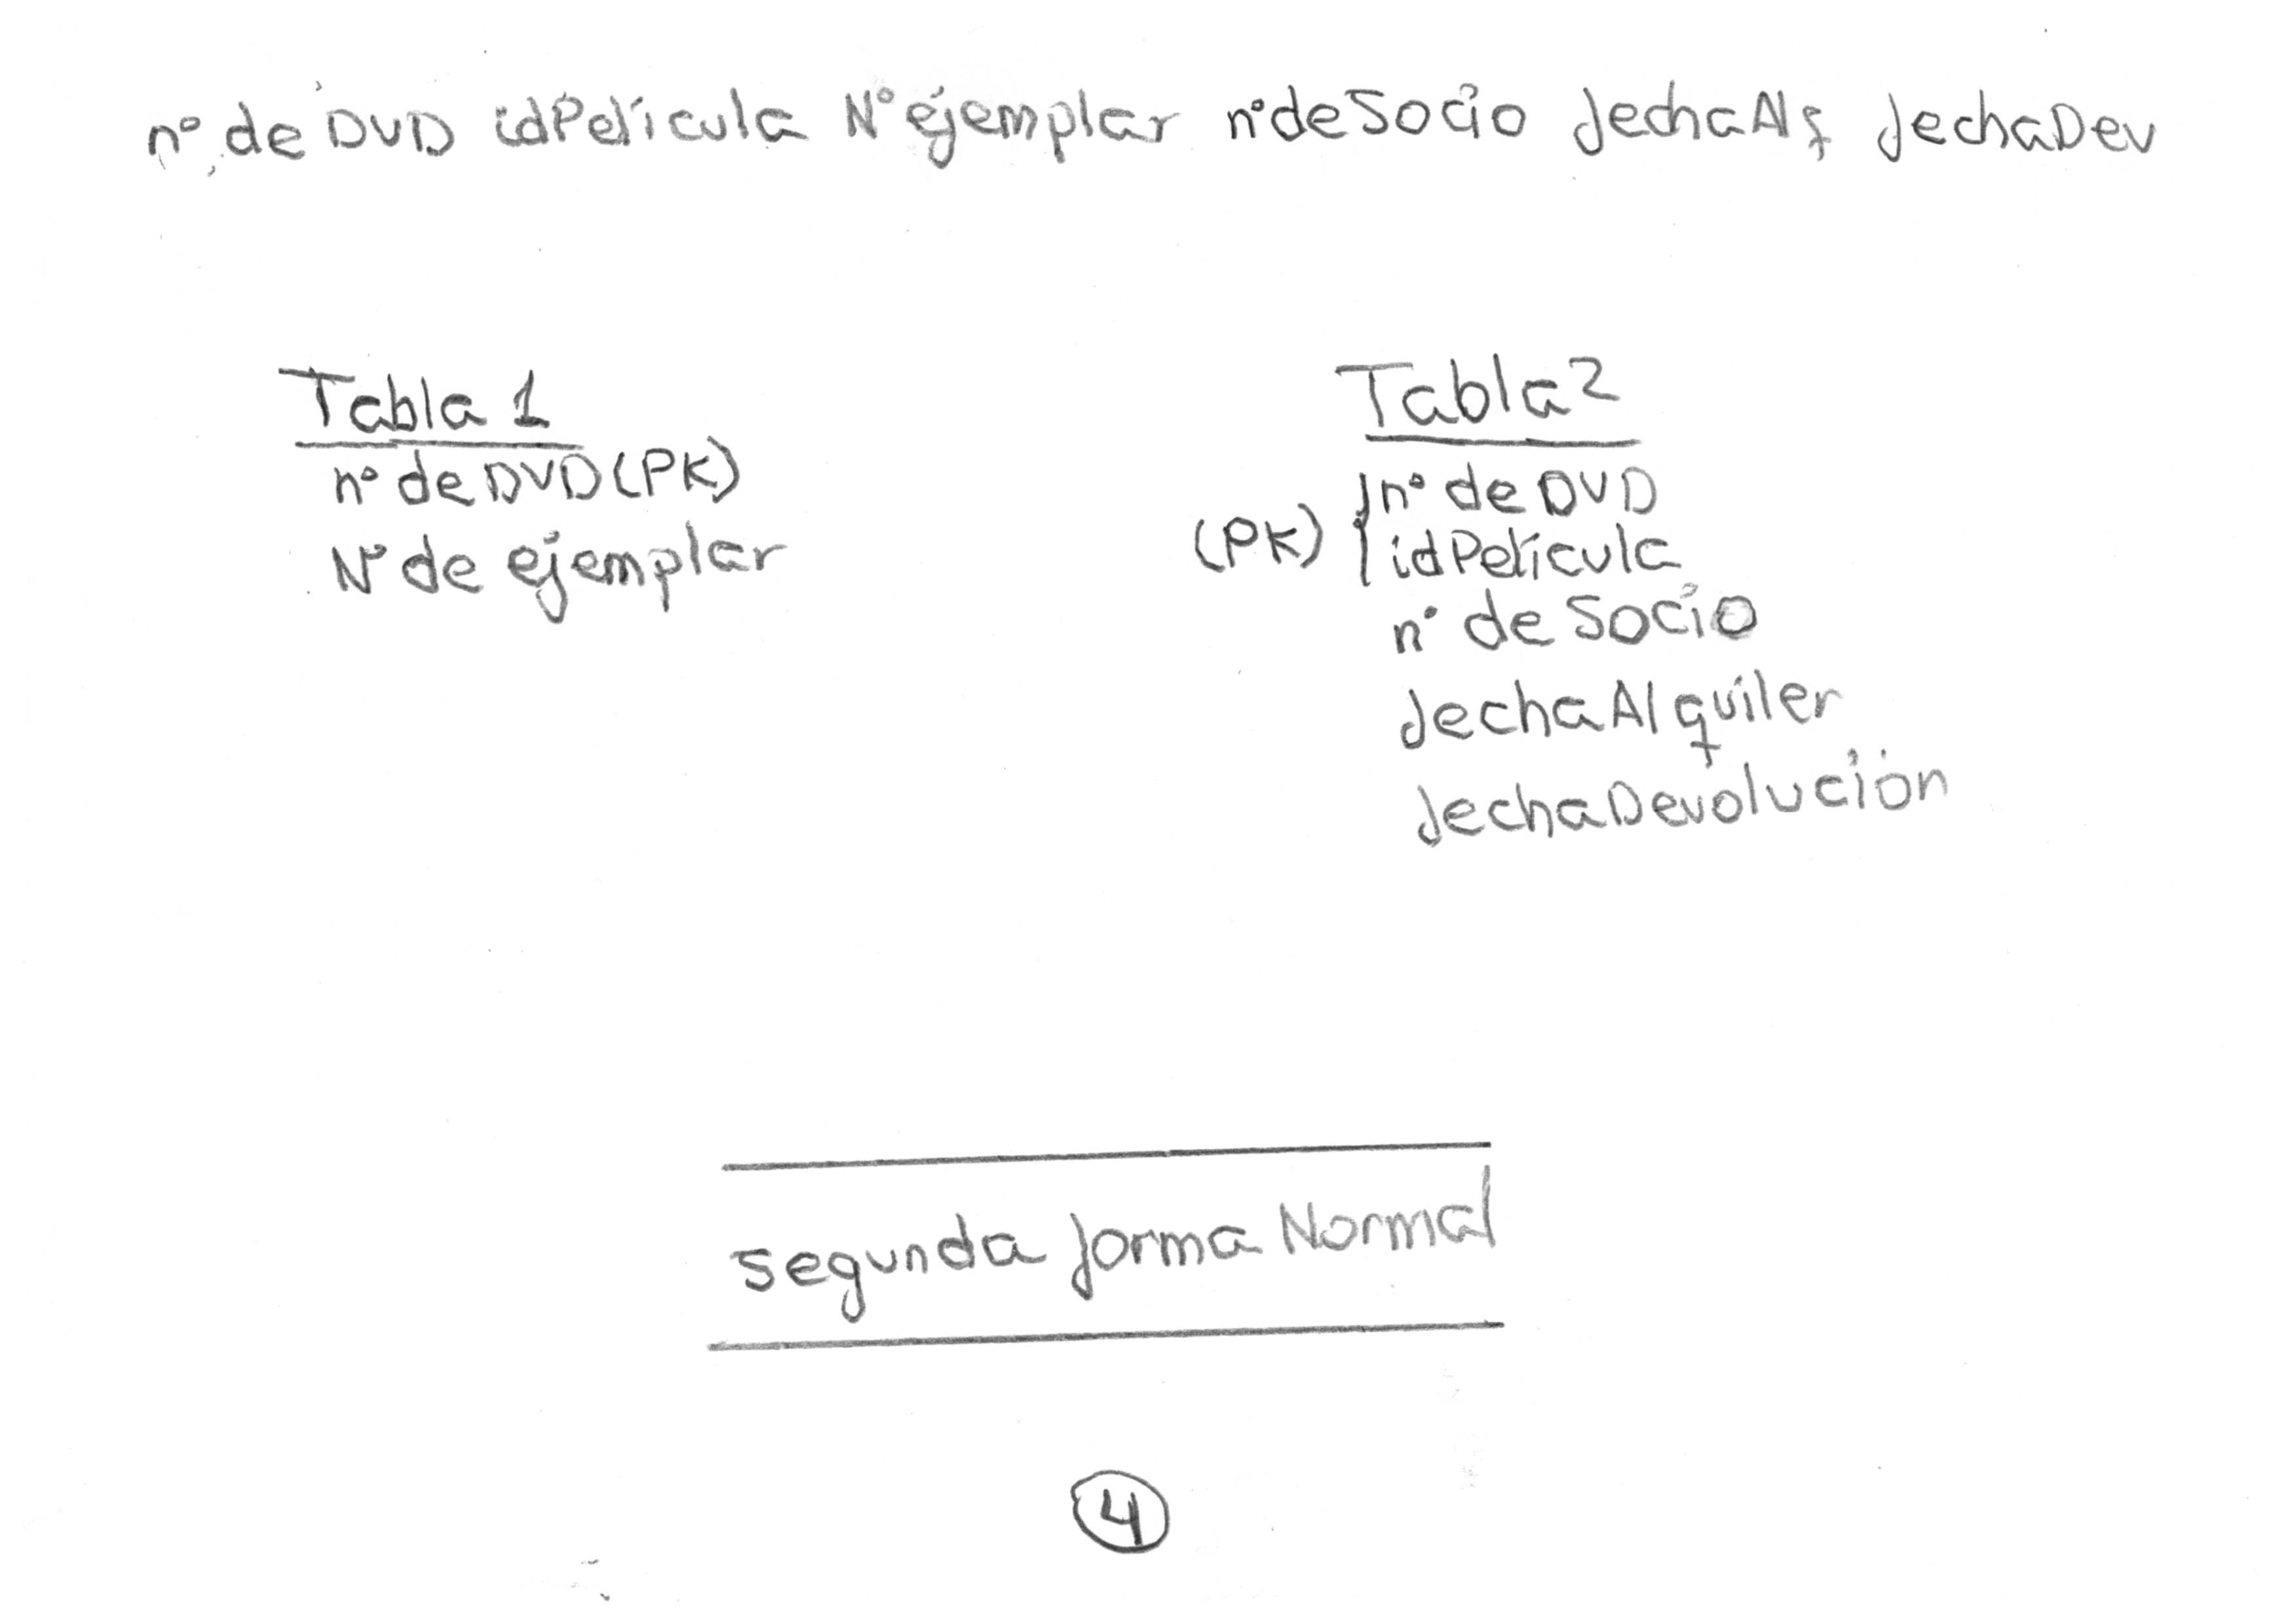 nº de DVD idPelícula Nº ejemplar nº de Socio fechaAlq fechaDev
Tabla 1
nº de DVD (PK)
Nº de ejemplar
Tabla 2
(PK) { nº de DVD
idPelícula
nº de Socio
fechaAlquiler
fechaDevolución
segunda forma Normal
4